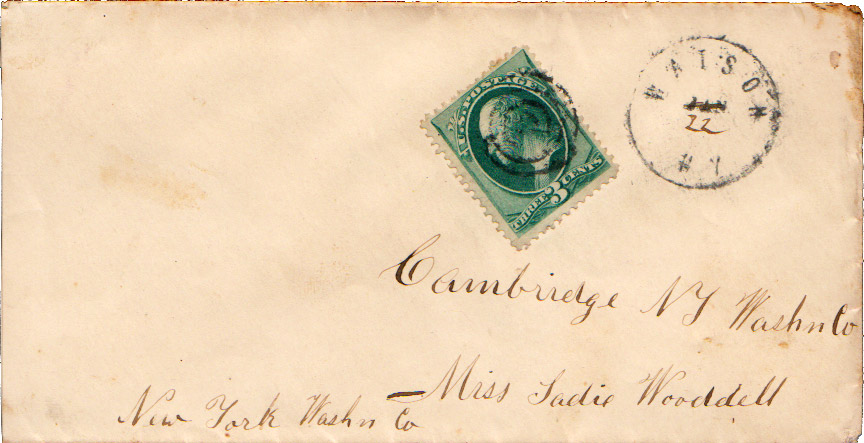 U.S. POSTAGE
THREE 3 CENTS
WATSON
JAN
22
N Y
Cambridge NY Washn Co
Miss Sadie Wooddell
New York Washn Co